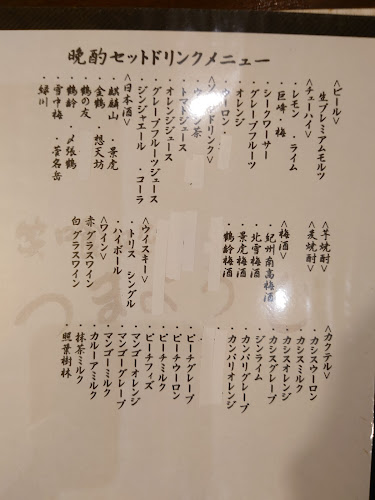 晩酌セットドリンクメニュー
<ビール>
・生プレミアムモルツ
<チューハイ>
・レモン ・ライム
・巨峰 ・梅
・シークワーサー
・グレープフルーツ
・オレンジ
・ウーロン
ドリンク>
・ウーロン茶
・トマトジュース
・オレンジジュース
・グレープフルーツジュース
・ジンジャエール ・コーラ
<日本酒>
・麒麟山 ・景虎
・金鶴 ・想天坊
・鶴の友
・鶴齢 ・〆張鶴
・雪中梅 ・菅名岳
・緑川
<芋焼酎>
<麦焼酎>
<梅酒>
・紀州南高梅酒
・北雪梅酒
・景虎梅酒
・鶴齢梅酒
<ウイスキー>
・トリス シングル
・ハイボール
<ワイン>
赤グラスワイン
白グラスワイン
<カクテル>
・カシスウーロン
・カシスミルク
・カシスオレンジ
・カシスグレープ
・ジンライム
・カンパリグレープ
・カンパリオレンジ
・ピーチグレープ
・ピーチウーロン
・ピーチミルク
・ピーチフィズ
・マンゴーオレンジ
・マンゴーグレープ
・マンゴーミルク
・カルーアミルク
・抹茶ミルク
・照葉樹林